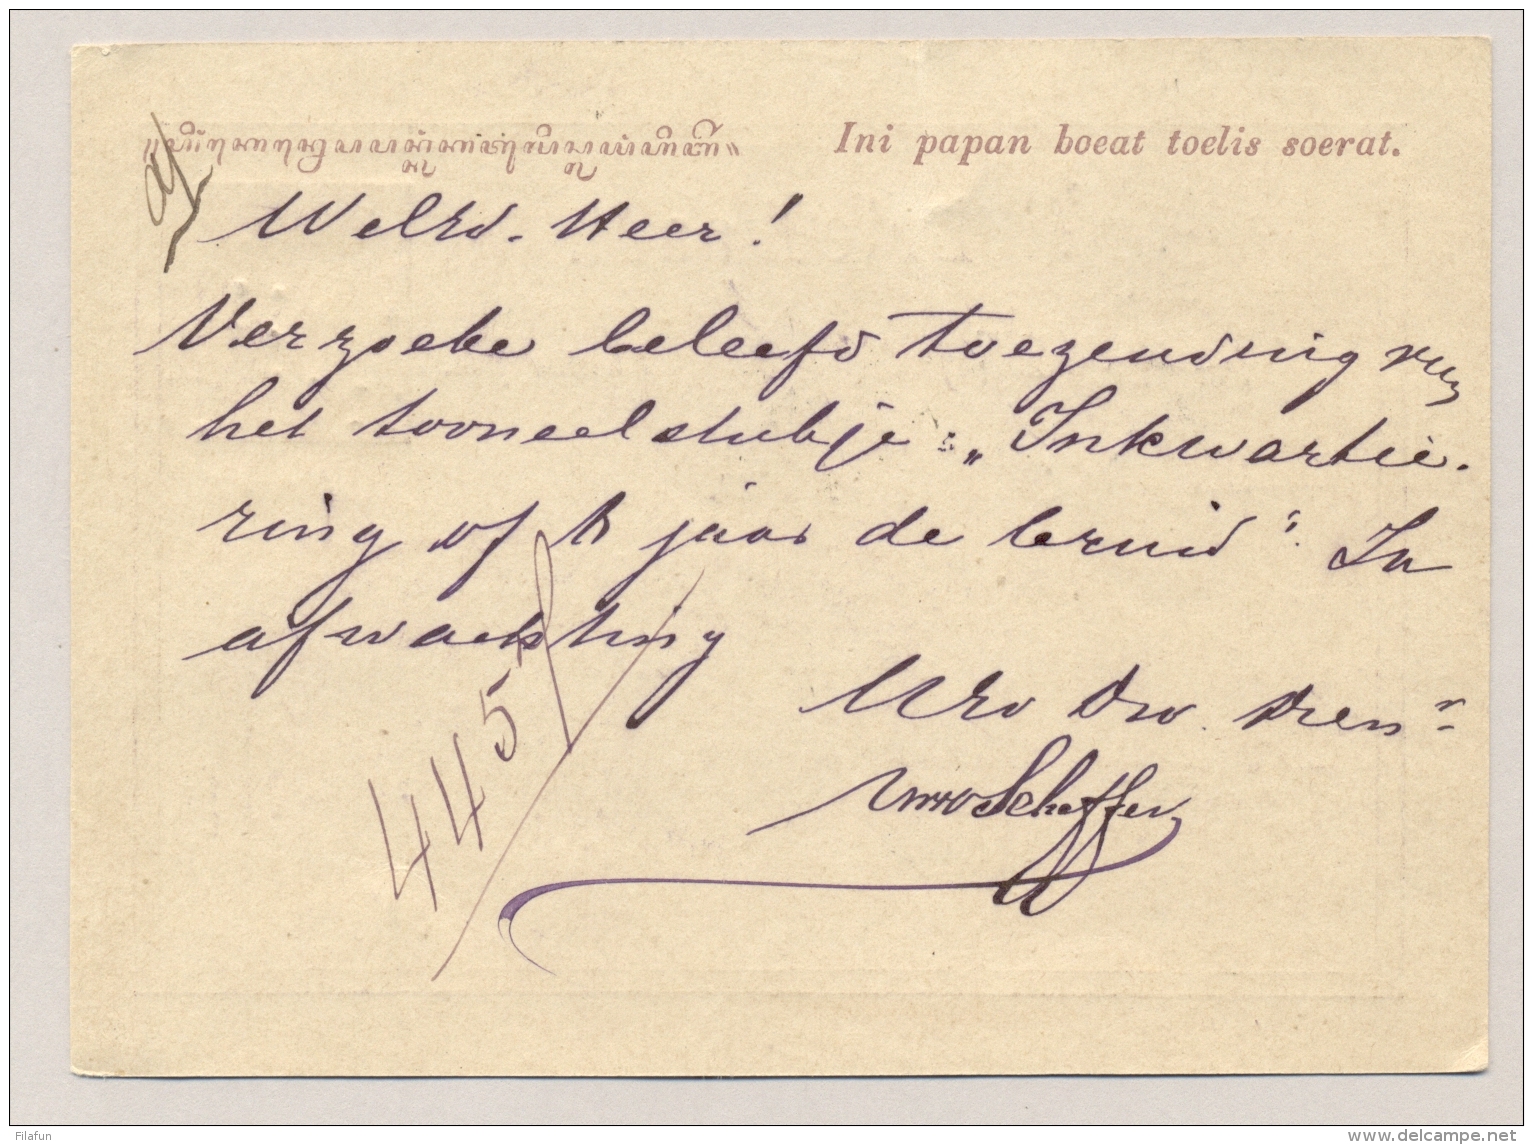 Ini papan boeat toelis soerat.
WelEd. Heer!
Verzoeke beleefd toezending van
het tooneelstukje: „Inkwartie-
ring of 1 jaar de bruid". In
afwachting
UEd Dw. Dien^r
Scheffer
445
Filafun
www.delcampe.net